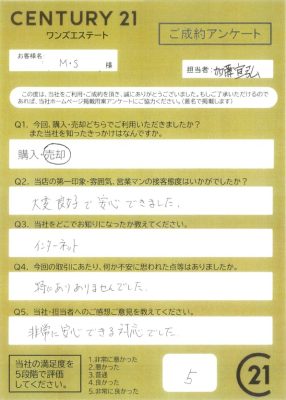 CENTURY 21
ワンズエステート
ご成約アンケート
お客様名
M・S 様
担当者:加藤宣弘
この度は、当社をご利用・ご成約を頂き、誠にありがとうございました。もしご了承いただけるので
あれば、当社ホームページ掲載用案アンケートにご協力ください。(匿名で掲載します)
Q1. 今回、購入・売却どちらでご利用いただきましたか?
また当社を知ったきっかけはなんですか。
購入・売却
Q2. 当店の第一印象・雰囲気、営業マンの接客態度はいかがでしたか?
大変良好で安心できました。
Q3. 当社をどこでお知りになったか教えてください。
インターネット
Q4. 今回の取引にあたり、何か不安に思われた点等はありましたか。
特にありありませんでした。
Q5. 当社・担当者へのご感想ご意見を教えてください。
非常に安心できる対応でした。
当社の満足度を
5段階で評価
してください。
1.非常に悪かった
2.悪かった
3.普通
4.良かった
5.非常に良かった
5
C21